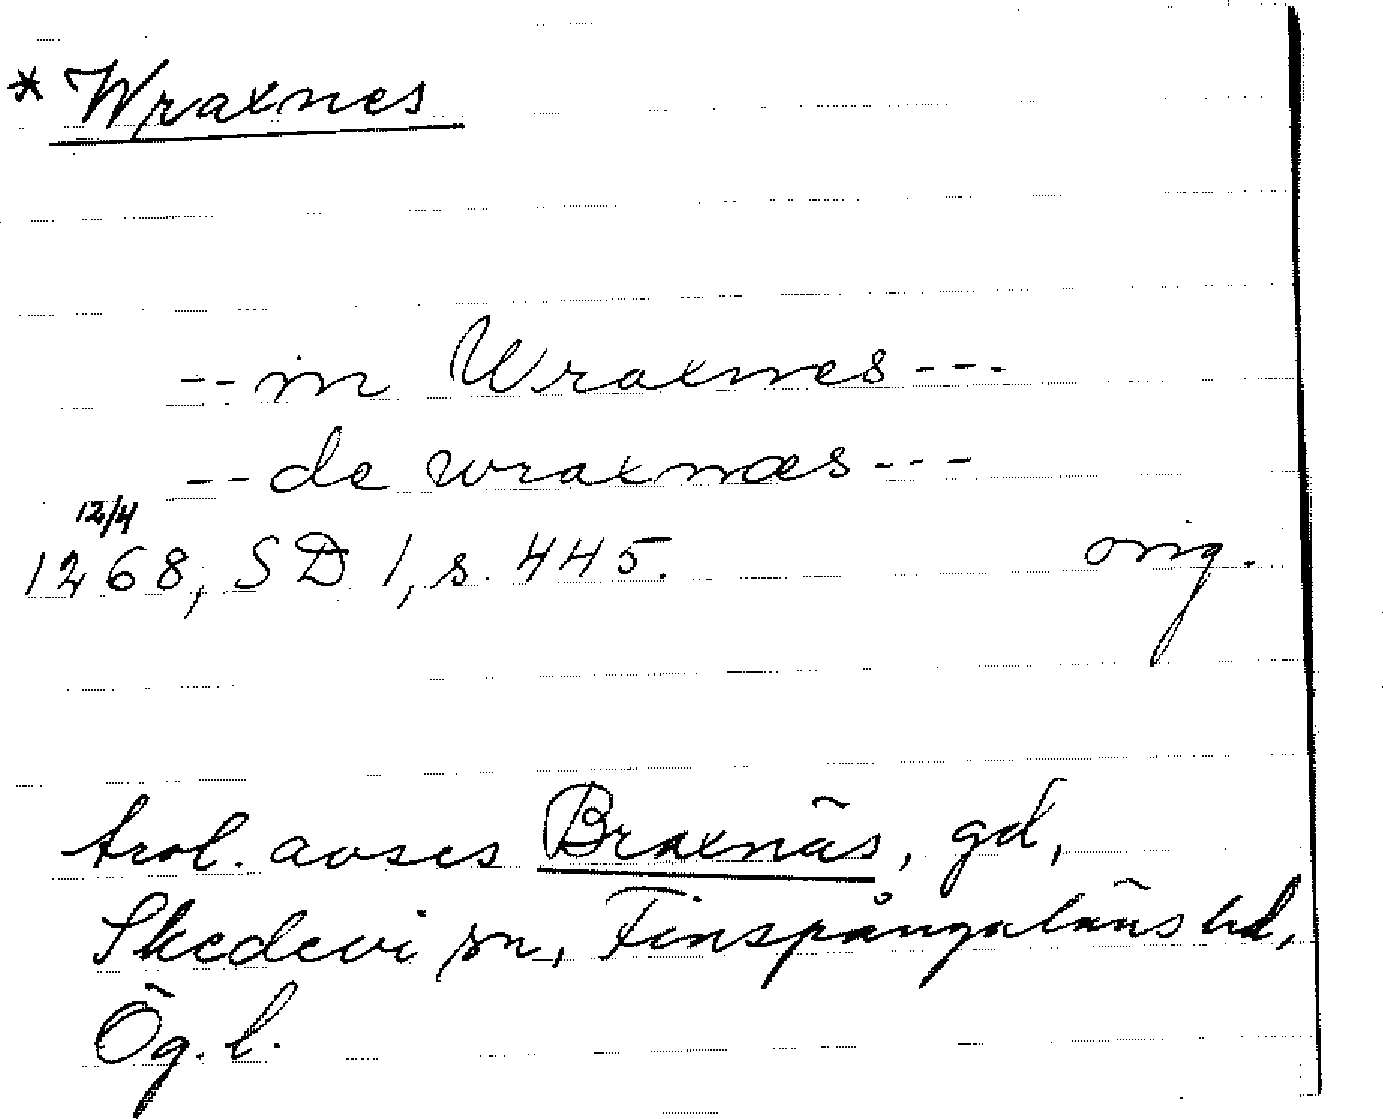 * Wraxnes
-- in Wraxnes ---
-- de wraxnæs ---
12/4
1268, SD 1, s. 445. orig.
trol. avses Braxnäs, gd,
Skedevi sn, Finspångaläns hd,
Ög. l.